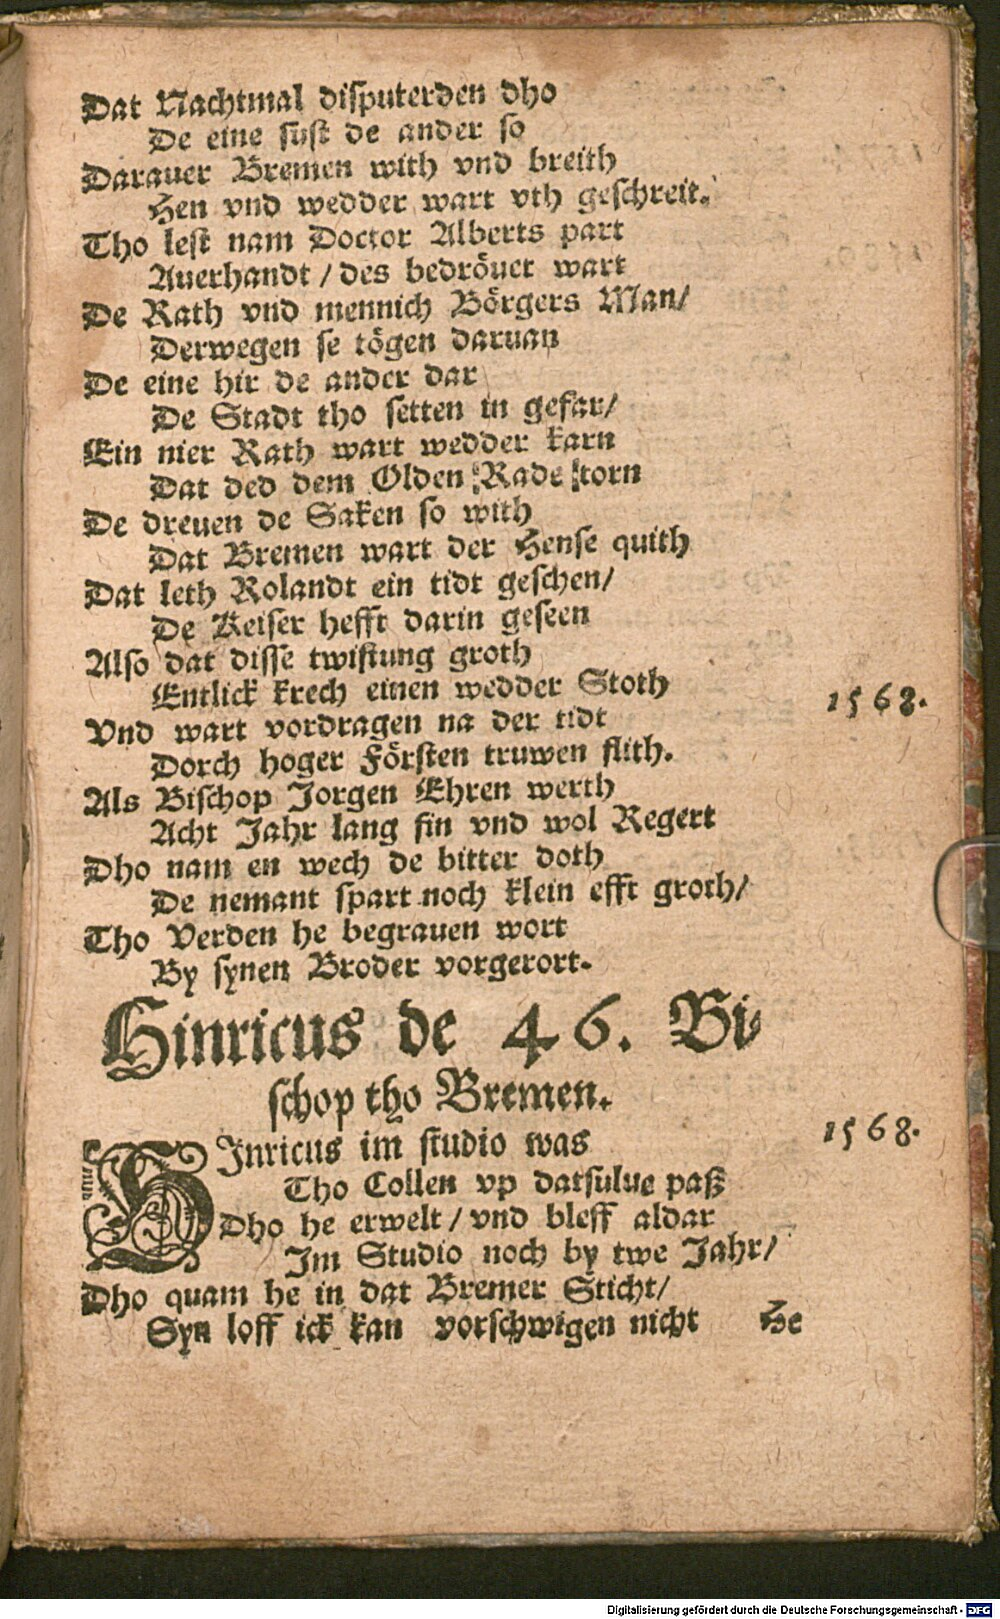 Dat Nachtmal disputerden dho
De eine sust de ander so
Darauer Bremen with vnd breith
Hen vnd wedder wart vth geschreit.
Tho lest nam Doctor Alberts part
Auerhandt / des bedröuet wart
De Rath vnd mennich Börgers Man/
Derwegen se tögen daruan
De eine hir de ander dar
De Stadt tho setten in gefar/
Ein nier Rath wart wedder karn
Dat ded dem Olden Rade torn
De dreuen de Saken so with
Dat Bremen wart der Hense quith
Dat leth Rolandt ein tidt geschen/
De Keiser hefft darin geseen
Also dat disse twistung groth
Entlick krech einen wedder Stoth
1568.
Vnd wart vordragen na der tidt
Dorch hoger Försten truwen flith.
Als Bischop Jorgen Ehren werth
Acht Jahr lang fin vnd wol Regert
Dho nam en wech de bitter doth
De nemant spart noch klein efft groth/
Tho Verden he begrauen wort
By synen Broder vorgerort.
Hinricus de 46. Bi-
schop tho Bremen.
1568.
HInricus im studio was
Tho Collen vp datsulue paß
Dho he erwelt / vnd bleff aldar
Im Studio noch by twe Jahr/
Dho quam he in dat Bremer Sticht/
Syn loff ick kan vorschwigen nicht
He
Digitalisierung gefördert durch die Deutsche Forschungsgemeinschaft - DFG